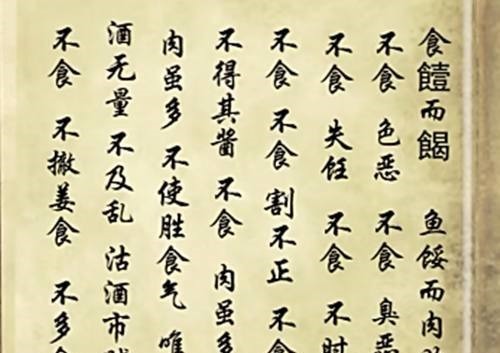 食饐而餲 鱼馁而肉
不食 色恶 不食 臭恶
不食 失饪 不食 不时
不食 不食 割不正 不食
不得其醬 不食 肉虽多
肉虽多 不使胜食气 唯
酒无量 不及乱 沽酒市
不食 不撤姜食 不多食